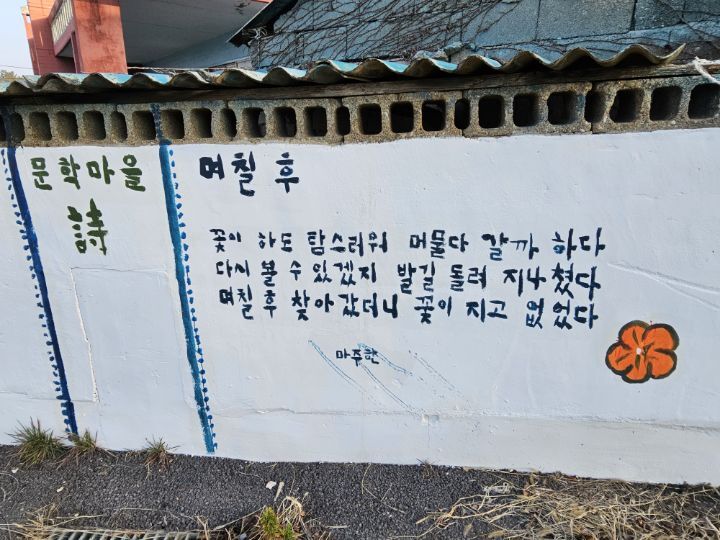 문학마을
詩
며칠 후
꽃이 하도 탐스러워 머물다 갈까 하다
다시 볼 수 있겠지 발길 돌려 지나쳤다
며칠 후 찾아갔더니 꽃이 지고 없었다
마주한